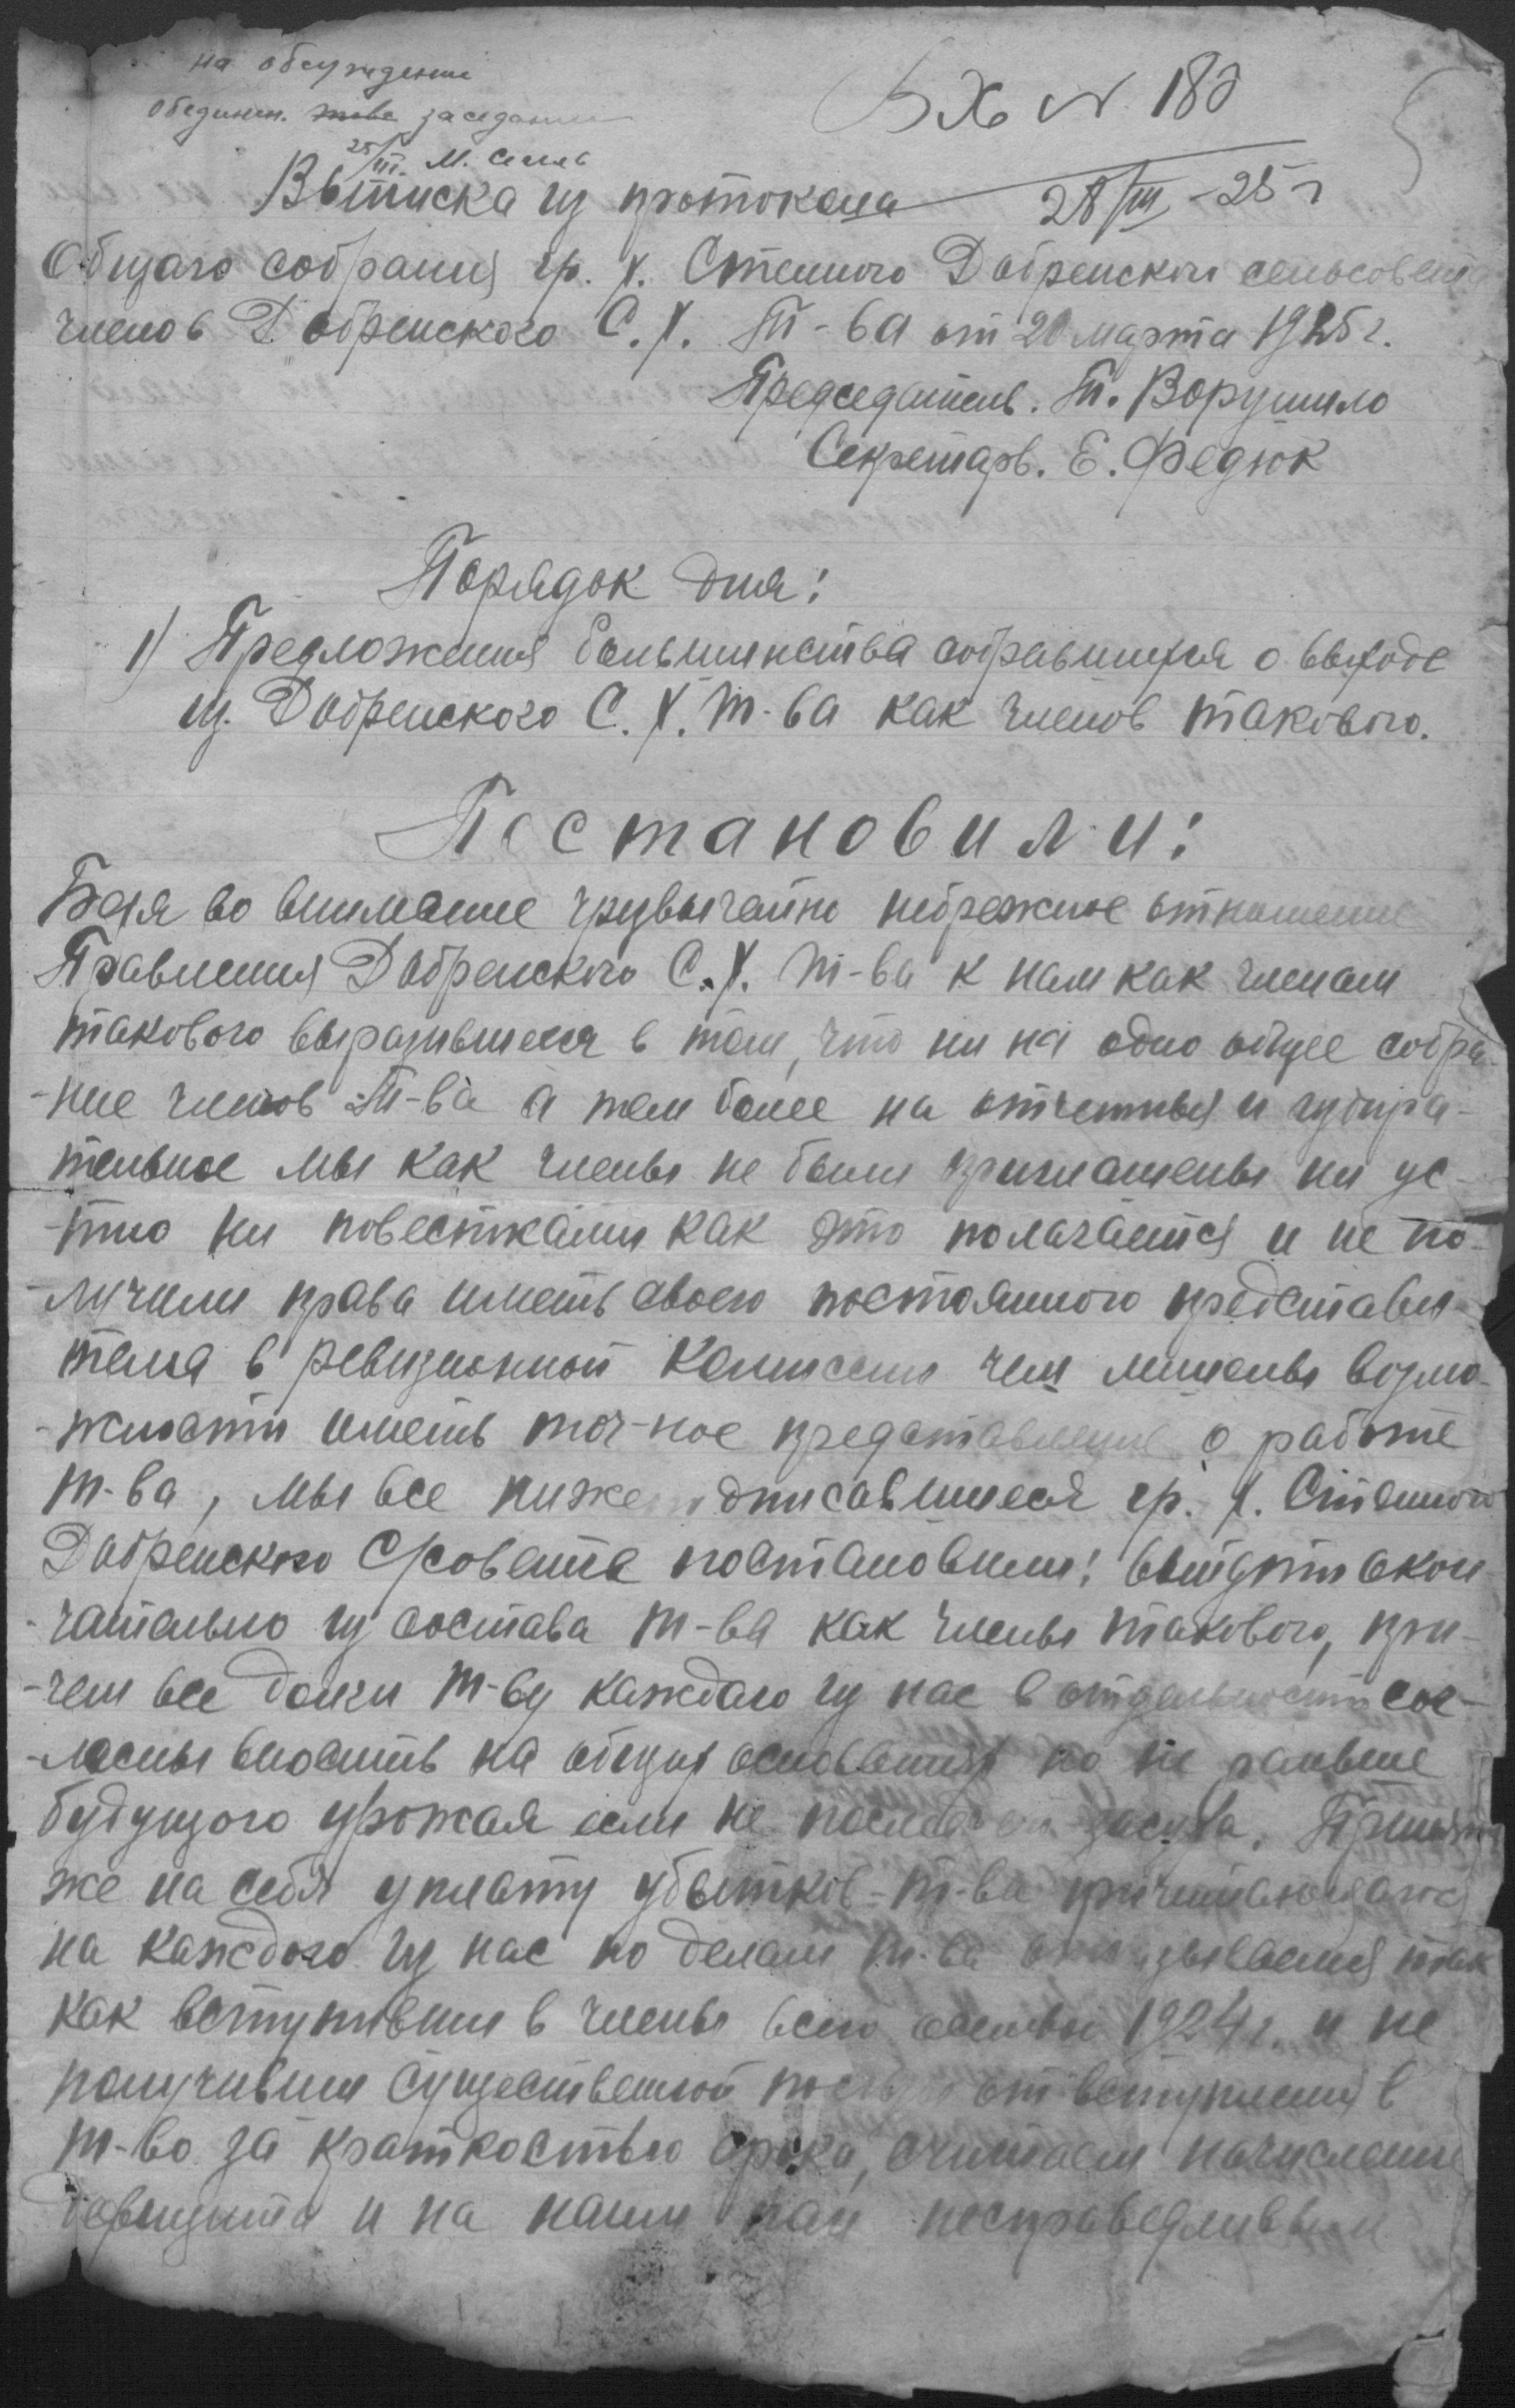 на обсуждение
обединен. заседания
25/III. М.
Вх № 180
28/III-25 г
Выписка из протокола
Общаго собрания гр. х. Степного Добренского сельсовета
членов Добренского С.Х. Т-ва от 20 марта 1925 г.
Председатель. Т. Ворушило
Секретарь. Е. Федюк
Порядок дня:
1) Предложения большинства собравшихся о выходе
из Добренского С.Х. т-ва как членов такового.
Постановили:
Беря во внимание чрезвычайно небрежное отношение
Правления Добренского С.Х. т-ва к нам как членам
такового выразившееся в том, что ни на одно общее собра-
-ние членов Т-ва а тем более на отчетныя и избира-
тельное мы как члены не были приглашены ни ус-
-тно ни повестками как это полагается и не по-
-лучили права иметь своего постоянного представи-
теля в ревизионной Комиссии чем лишены возмо-
-жности иметь точ-ное представление о работе
т-ва, мы все нижеподписавшиеся гр. х. Степного
Добренского С/совета постановили: выйдти окон
-чательно из состава т-ва как члены такового, при-
-чем все долги т-ву каждаго из нас в отдельности сог-
-ласны вносить на общих основаниях но не раньше
будущого урожая если не последует засуха. Принять
же на себя уплату убытков т-ва причитающагося
на каждого из нас по делам т-ва отказываемся так
как вступивши в члены всего осенью 1924 г. и не
получивши существенной пользы от вступления в
т-во за краткостью срока, считаем начисление
дефицита и на наши паи несправедливым